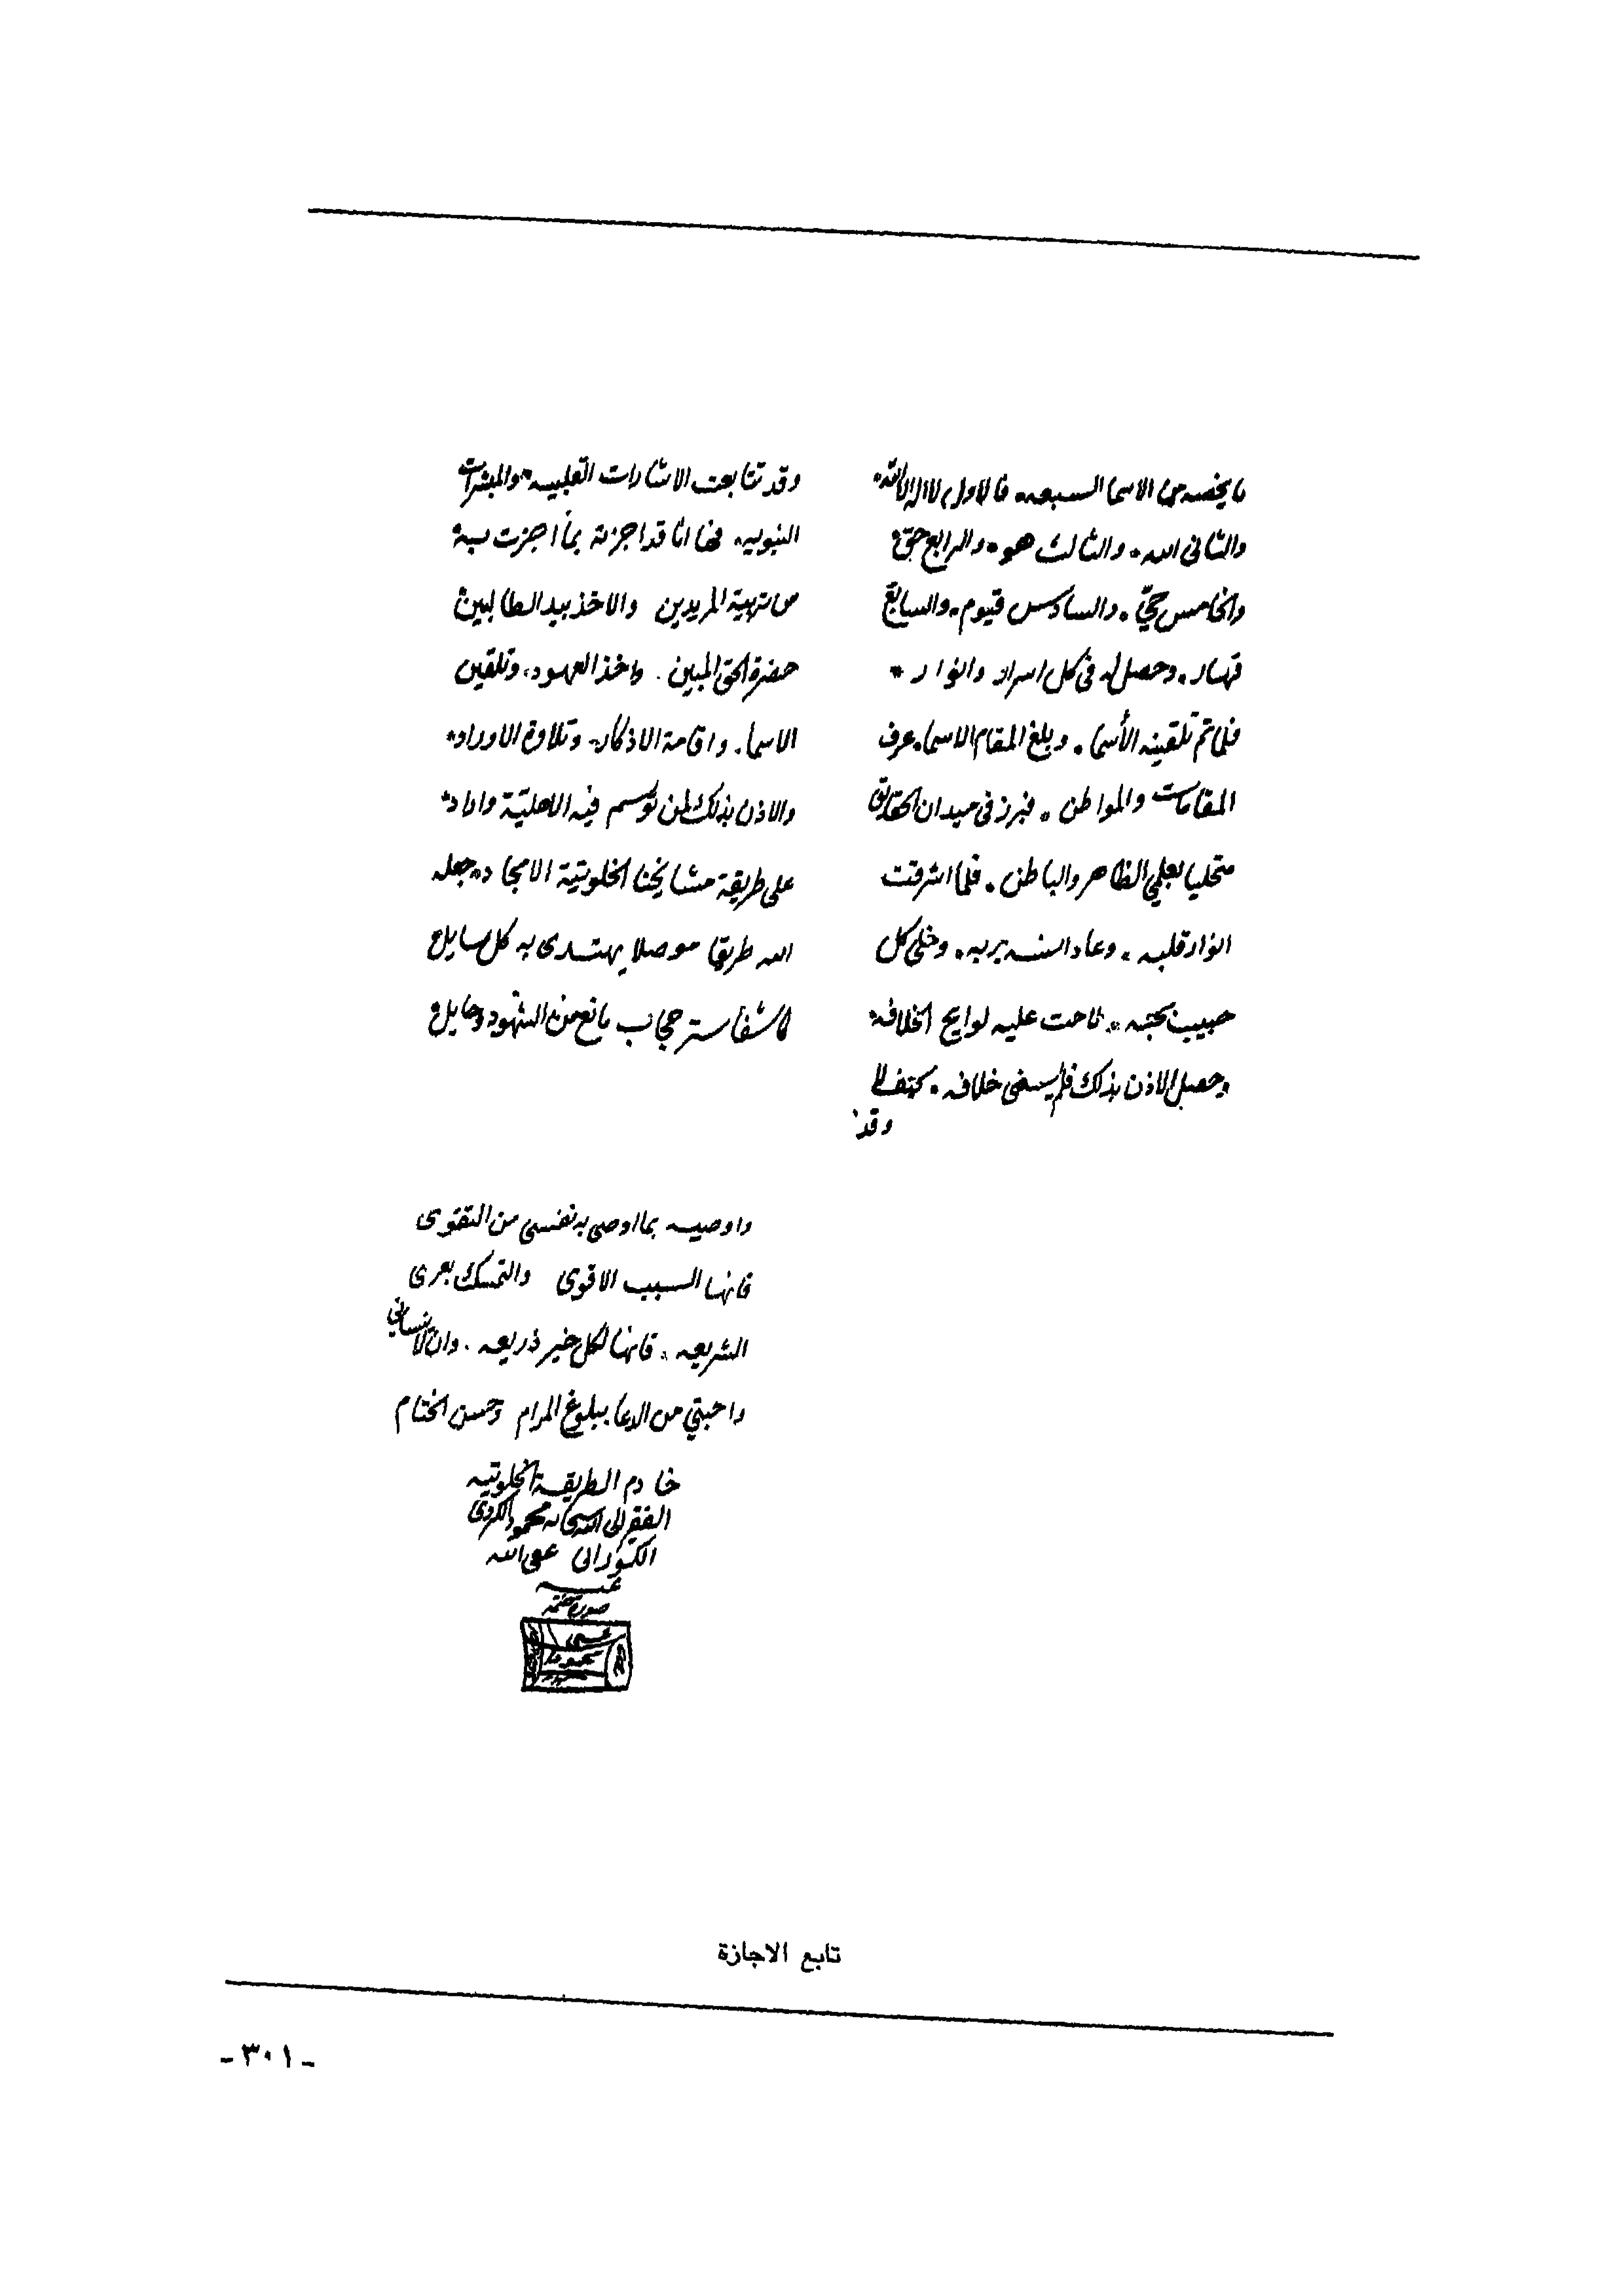 ما يخصه من الاسما السبعه فالاول لا اله الا الله
والثانى الله والثالث هو والرابع حقّ
والخامس حيّ والسادس قيوم والسابع
قهار وحصل له فى كل اسرار وانوار *
فلما تم تلقينه الأسما وبلغ المقام الاسما عرف
المقامات والمواطن فبرز فى ميدان الحقائق
متحليا بعلمي الظاهر والباطن فلما اشرقت
انوار قلبه وعاد انسه بربه وخلى كل
حبيب بحبه لاحت عليه لوايح الخلافه
وحصل الاذن بذلك فلم يسعنى خلافه
وقد
وقد تتابعت الاشارات القلبيه والمبشرات
النبويه فها انا قد اجزته بما أجزت به
من تربية المريدين والاخذ بيد الطالبين
حضرة الحق المبين واخذ العهود وتلقين
الاسما واقامة الاذكار وتلاوة الاوراد
والاذن بذلك لمن توسم فيه الاهليّة واراد
على طريقة مشايخنا الخلوتية الامجاد جعله
الله طريقا موصلا يهتدى به كل سايل
كاشفا ستر حجاب مانع من الشهود وحايل
واوصيه بما اوصى به نفسى من التقوى
فانها السبب الاقوى والتمسك بعرى
الشريعه فانها لكل خير ذريعه وان لا ينساني
واحبتي من الدعا ببلوغ المرام وحسن الختام
خادم الطريقة الخلوتيه
الفقير الى الله سبحانه محمود الكردى
الكورانى عفى الله
عنه
صورة ختمه
تابع الاجازة
- ٣٠١ -